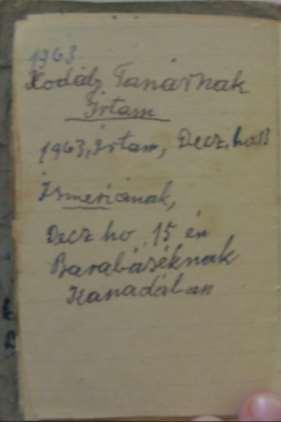 1963
Kodály Tanárnak
Írtam
1963, Írtam, Decz. hó 13
Ismeriának,
Decz hó 15 én
Barabáséknak
Kanadában